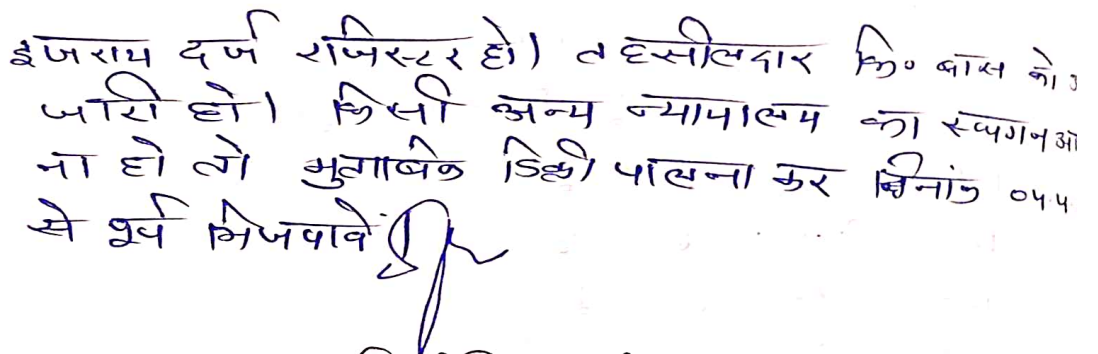 इजराय दर्ज रजिस्टर हो। तहसीलदार कि० बास को
जारी हो। किसी अन्य न्यायालय का स्थगन
ना हो तो मुताबिक डिक्री पालना कर दिनांक
से पूर्व भिजवावें